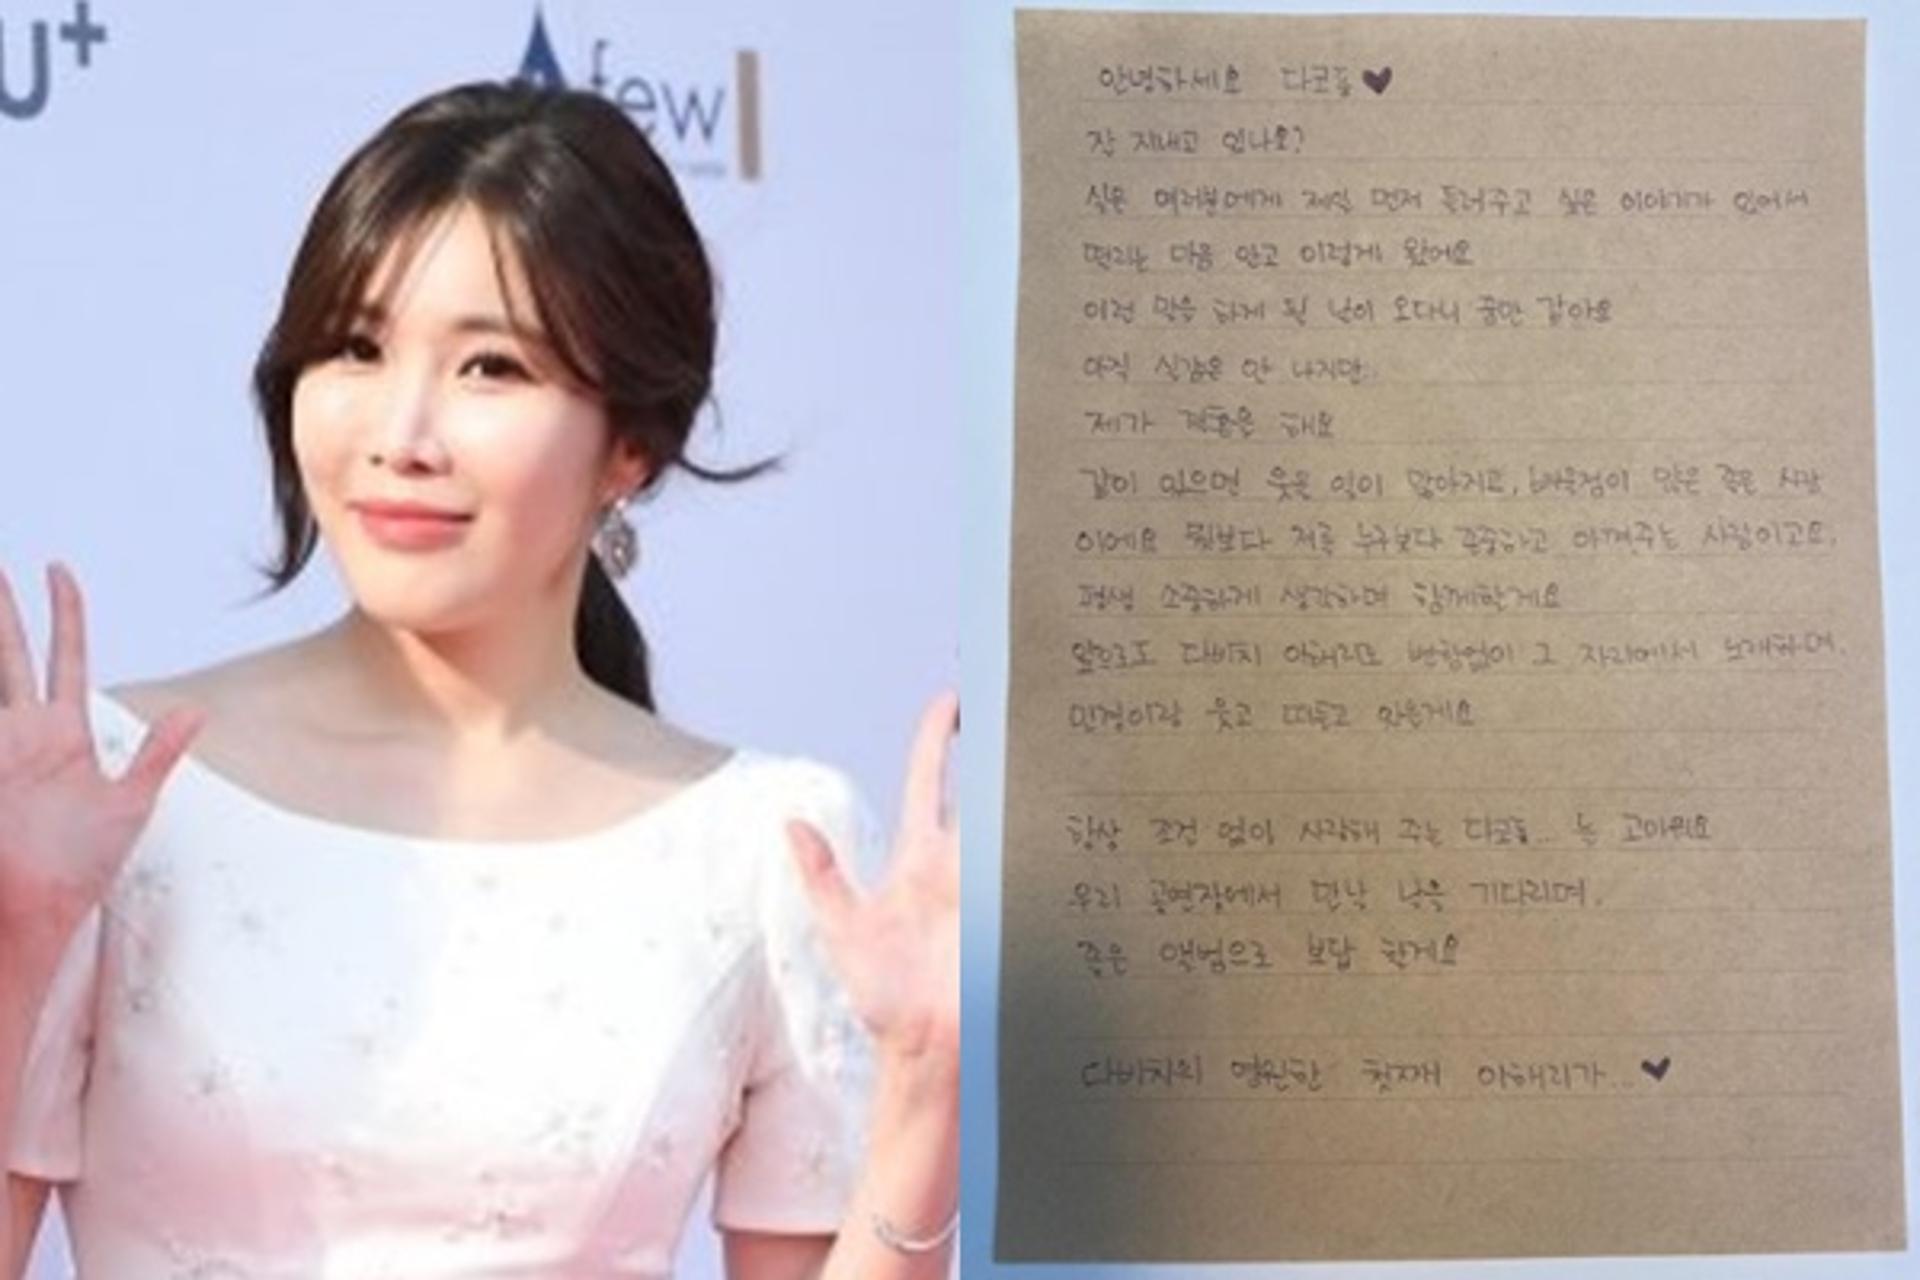 U+
few
안녕하세요 다코들♥
잘 지내고 있나요?
실은 여러분에게 제일 먼저 들려주고 싶은 이야기가 있어서
떨리는 마음 안고 이렇게 왔어요
이런 말을 하게 될 날이 오다니 꿈만 같아요
아직 실감은 안 나지만..
제가 결혼을 해요
같이 있으면 웃을 일이 많아지고, 배울점이 많은 좋은 사람
이에요 뭣보다 저를 누구보다 존중하고 아껴주는 사람이고요.
평생 소중하게 생각하며 함께할게요
앞으로도 다비치 이해리로 변함없이 그 자리에서 노래하며,
민경이랑 웃고 떠들고 있을게요
항상 조건 없이 사랑해 주는 다코들.. 늘 고마워요
우리 공연장에서 만날 날을 기다리며,
좋은 앨범으로 보답 할게요
다비치의 영원한 첫째 이해리가...♥